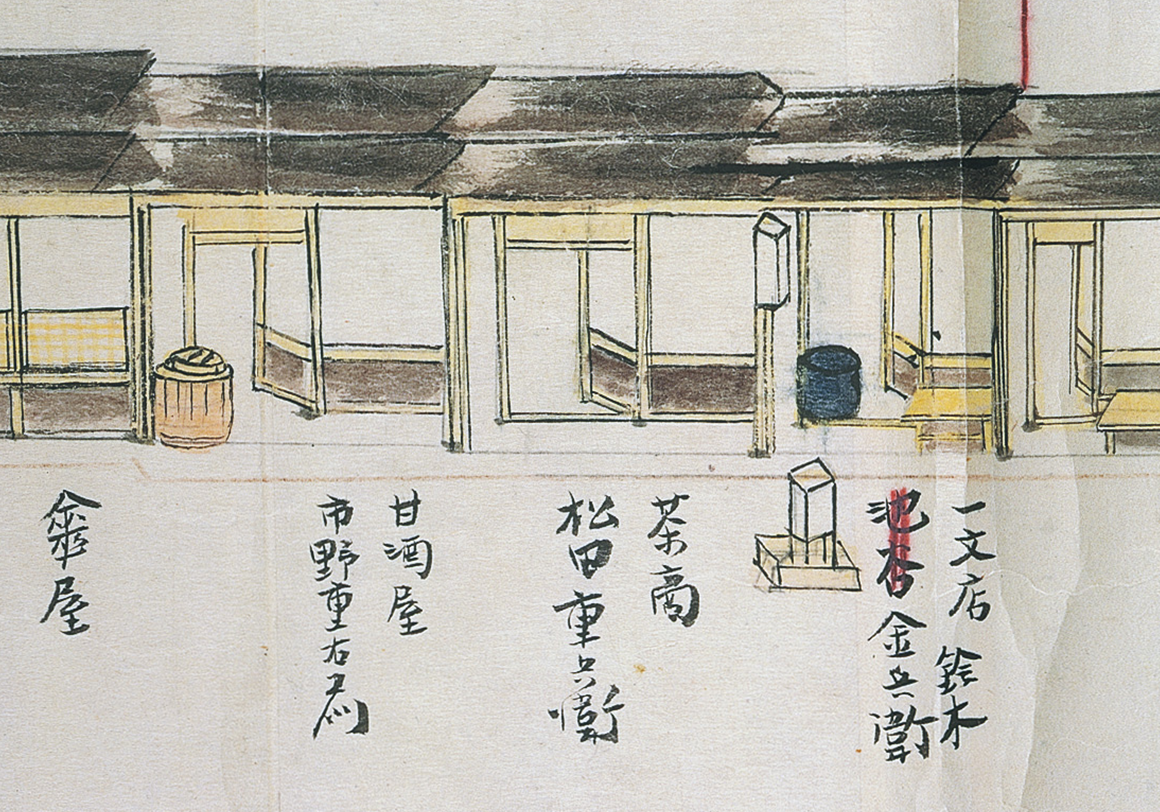 一文店 鈴木
池谷金兵衛
茶商
松田重兵衛
甘酒屋
市野重右衛門
傘屋